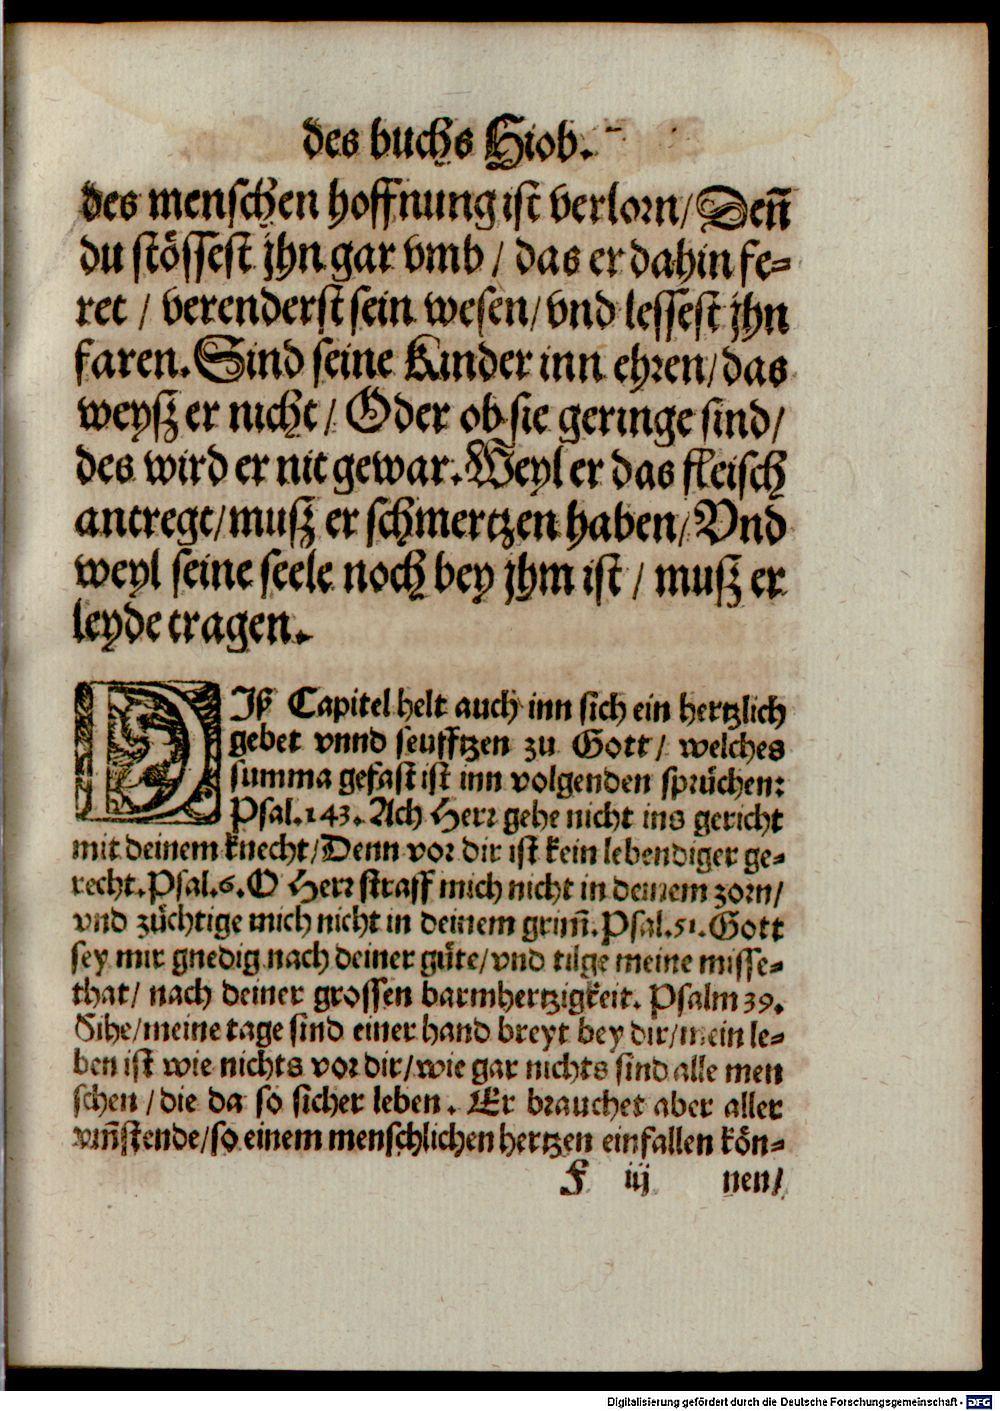 des buchs Hiob.
des menschen hoffnung ist verlorn/ Deñ
du stössest jhn gar vmb / das er dahin fe=
ret / verenderst sein wesen/ vnd lessest jhn
faren. Sind seine Kinder inn ehren/ das
weyß er nicht / Oder ob sie geringe sind/
des wird er nit gewar. Weyl er das fleisch
antregt/ muß er schmertzen haben/ Vnd
weyl seine seele noch bey jhm ist / muß er
leyde tragen.
DIß Capitel helt auch inn sich ein hertzlich
gebet vnnd seufftzen zu Gott / welches
summa gefast ist inn volgenden sprüchen:
Psal. 143. Ach Herr gehe nicht ins gericht
mit deinem knecht/ Denn vor dir ist kein lebendiger ge=
recht. Psal. 6. O Herr straff mich nicht in deinem zorn/
vnd züchtige mich nicht in deinem grim̃. Psal. 51. Gott
sey mir gnedig nach deiner güte/ vnd tilge meine misse=
that/ nach deiner grossen barmhertzigkeit. Psalm 39.
Sihe/ meine tage sind einer hand breyt bey dir/ mein le=
ben ist wie nichts vor dir/ wie gar nichts sind alle men
schen / die da so sicher leben. Er brauchet aber aller
vm̃stende/ so einem menschlichen hertzen einfallen kön=
F iij nen/
Digitalisierung gefördert durch die Deutsche Forschungsgemeinschaft - DFG